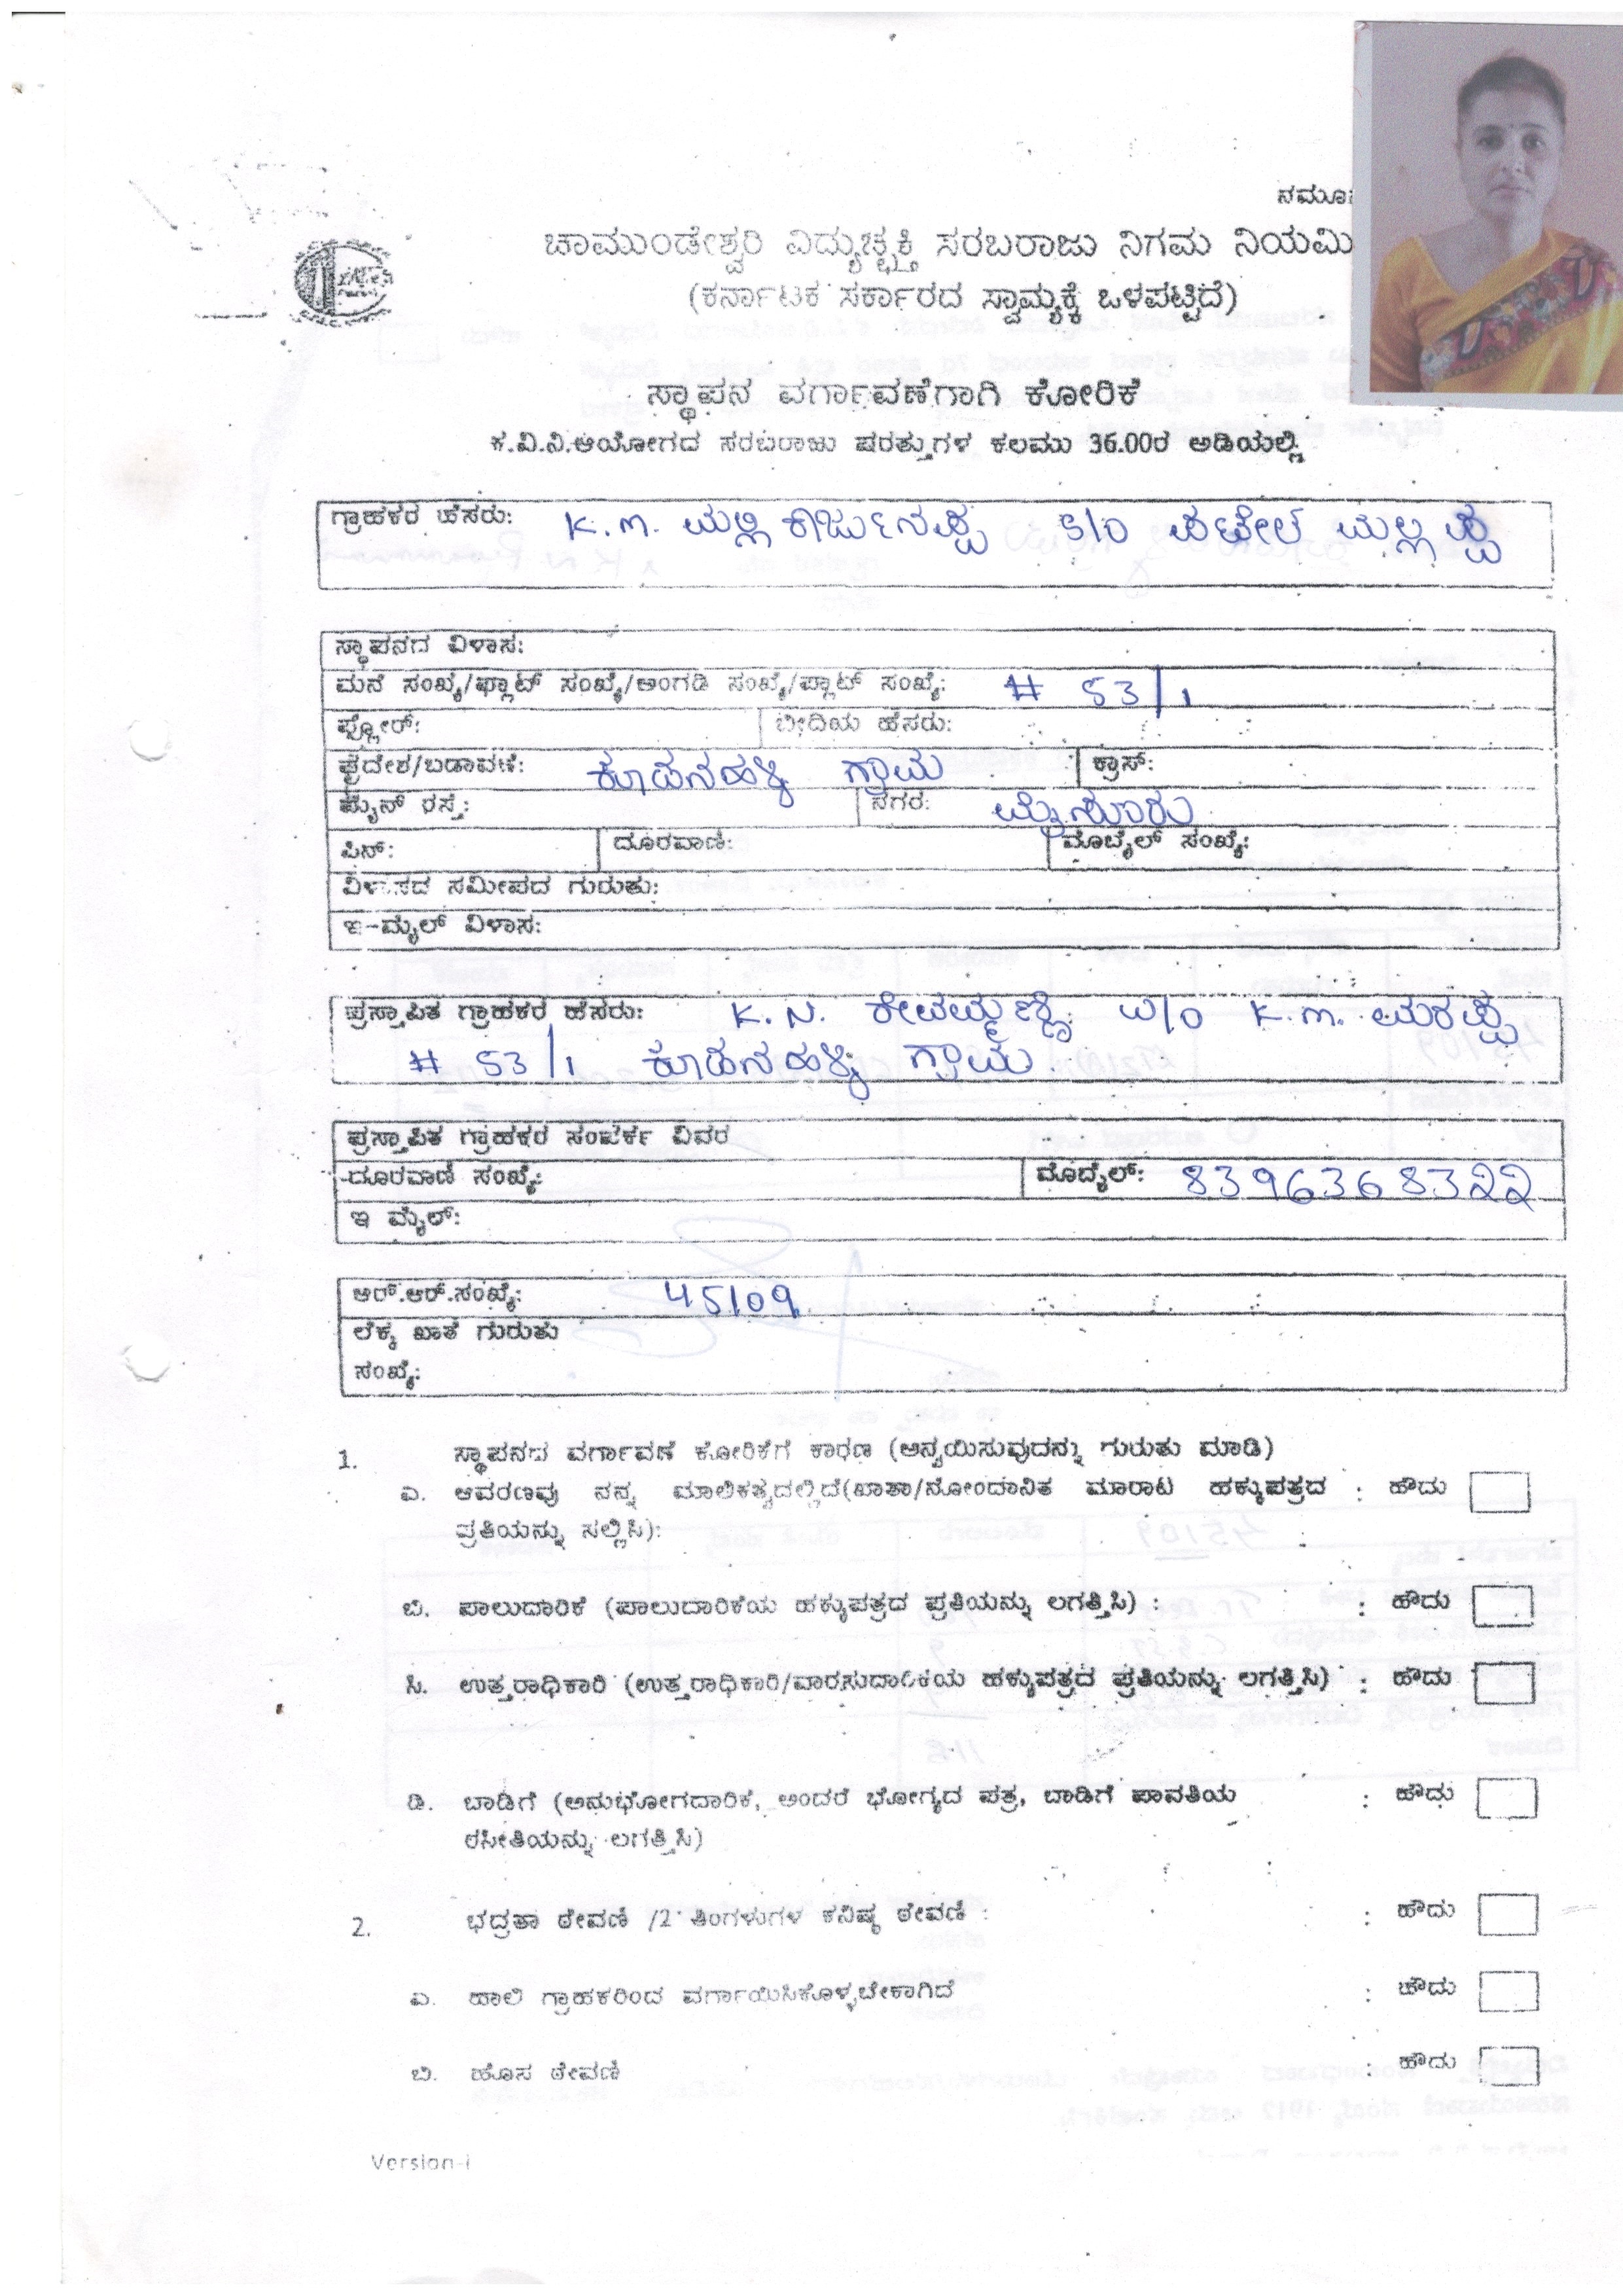 ನಮೂನ
ಚಾಮುಂಡೇಶ್ವರಿ ವಿದ್ಯುಚ್ಛಕ್ತಿ ಸರಬರಾಜು ನಿಗಮ ನಿಯಮಿ
(ಕರ್ನಾಟಕ ಸರ್ಕಾರದ ಸ್ವಾಮ್ಯಕ್ಕೆ ಒಳಪಟ್ಟಿದೆ)
ಸ್ಥಾಪನ ವರ್ಗಾವಣೆಗಾಗಿ ಕೋರಿಕೆ
ಕ.ವಿ.ನಿ.ಆಯೋಗದ ಸರಬರಾಜು ಷರತ್ತುಗಳ ಕಲಮು 36.00ರ ಅಡಿಯಲ್ಲಿ
ಗ್ರಾಹಕರ ಹೆಸರು: K.M. ಮಲ್ಲಿಕಾರ್ಜುನಪ್ಪ S/O ಪಟೇಲ ಮಲ್ಲಪ್ಪ
ಸ್ಥಾಪನದ ವಿಳಾಸ:
ಮನೆ ಸಂಖ್ಯೆ/ಫ್ಲಾಟ್ ಸಂಖ್ಯೆ/ಅಂಗಡಿ ಸಂಖ್ಯೆ/ಪ್ಲಾಟ್ ಸಂಖ್ಯೆ: # 53/1
ಫ್ಲೋರ್: ಬೀದಿಯ ಹೆಸರು:
ಪ್ರದೇಶ/ಬಡಾವಣೆ: ಕೂಪನಹಳ್ಳಿ ಗ್ರಾಮ ಕ್ರಾಸ್:
ಮೈನ್ ರಸ್ತೆ: ನಗರ: ಮೈಸೂರು
ಪಿನ್: ದೂರವಾಣಿ: ಮೊಬೈಲ್ ಸಂಖ್ಯೆ:
ವಿಳಾಸದ ಸಮೀಪದ ಗುರುತು:
ಇ-ಮೈಲ್ ವಿಳಾಸ:
ಪ್ರಸ್ತಾಪಿತ ಗ್ರಾಹಕರ ಹೆಸರು: K.N. W/O K.M.
# 53/1 ಕೂಪನಹಳ್ಳಿ ಗ್ರಾಮ
ಪ್ರಸ್ತಾಪಿತ ಗ್ರಾಹಕರ ಸಂಪರ್ಕ ವಿವರ
ದೂರವಾಣಿ ಸಂಖ್ಯೆ: ಮೊಬೈಲ್: 83963683೨೨
ಇ ಮೈಲ್:
ಆರ್.ಆರ್.ಸಂಖ್ಯೆ: 45109
ಲೆಕ್ಕ ಖಾತೆ ಗುರುತು
ಸಂಖ್ಯೆ:
1. ಸ್ಥಾಪನದ ವರ್ಗಾವಣೆ ಕೋರಿಕೆಗೆ ಕಾರಣ (ಅನ್ವಯಿಸುವುದನ್ನು ಗುರುತು ಮಾಡಿ)
ಎ. ಆವರಣವು ನನ್ನ ಮಾಲಿಕತ್ವದಲ್ಲಿದೆ(ಖಾತಾ/ನೋಂದಾನಿತ ಮಾರಾಟ ಹಕ್ಕುಪತ್ರದ : ಹೌದು
ಪ್ರತಿಯನ್ನು ಸಲ್ಲಿಸಿ):
ಬಿ. ಪಾಲುದಾರಿಕೆ (ಪಾಲುದಾರಿಕೆಯ ಹಕ್ಕುಪತ್ರದ ಪ್ರತಿಯನ್ನು ಲಗತ್ತಿಸಿ) : : ಹೌದು
ಸಿ. ಉತ್ತರಾಧಿಕಾರಿ (ಉತ್ತರಾಧಿಕಾರಿ/ವಾರಸುದಾರಿಕೆಯ ಹಕ್ಕುಪತ್ರದ ಪ್ರತಿಯನ್ನು ಲಗತ್ತಿಸಿ) : ಹೌದು
ಡಿ. ಬಾಡಿಗೆ (ಅನುಭೋಗದಾರಿಕೆ, ಅಂದರೆ ಭೋಗ್ಯದ ಪತ್ರ, ಬಾಡಿಗೆ ಪಾವತಿಯ : ಹೌದು
ರಸೀತಿಯನ್ನು ಲಗತ್ತಿಸಿ)
2. ಭದ್ರತಾ ಠೇವಣಿ /2 ತಿಂಗಳುಗಳ ಕನಿಷ್ಠ ಠೇವಣಿ : : ಹೌದು
ಎ. ಹಾಲಿ ಗ್ರಾಹಕರಿಂದ ವರ್ಗಾಯಿಸಿಕೊಳ್ಳಬೇಕಾಗಿದೆ : ಹೌದು
ಬಿ. ಹೊಸ ಠೇವಣಿ : ಹೌದು
Version-i